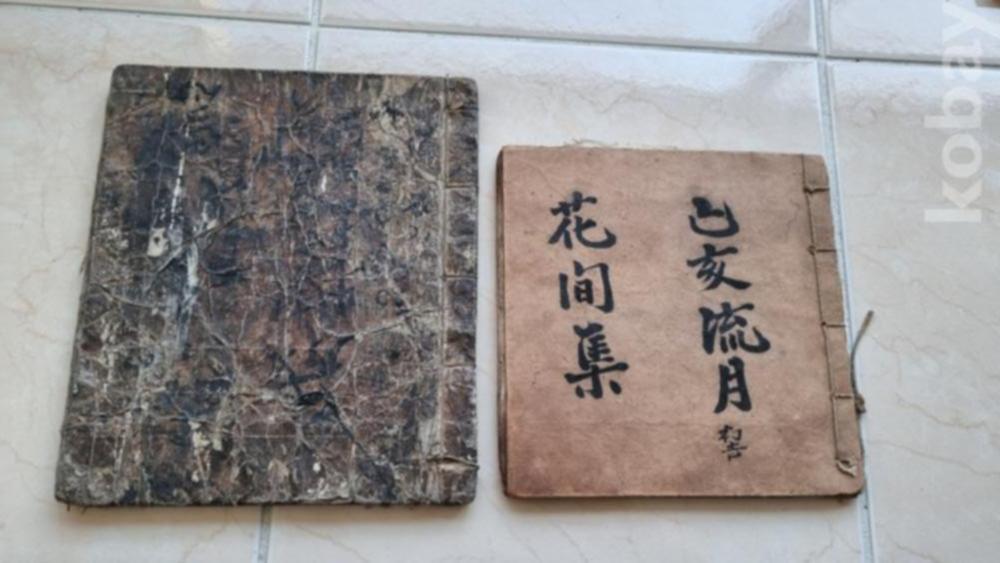 己亥流月
花間集
kobay